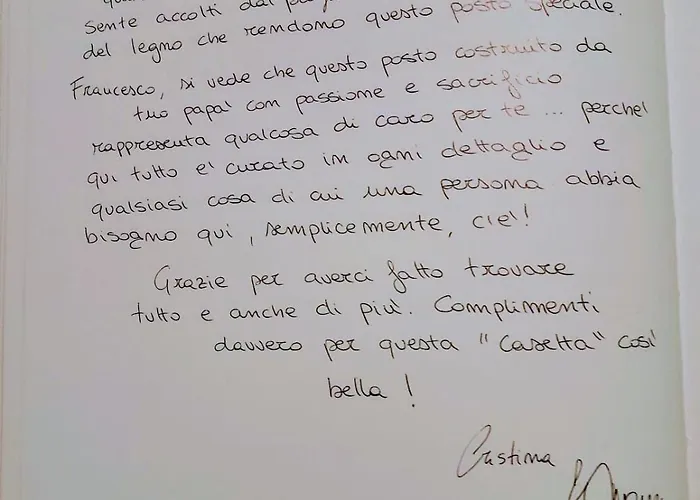 sente accolti dal
del legno che rendono questo posto speciale.
Francesco, si vede che questo posto costruito da
tuo papa' con passione e sacrificio
rappresenta qualcosa di caro per te ... perche'
qui tutto e' curato in ogni dettaglio e
qualsiasi cosa di cui una persona abbia
bisogno qui, semplicemente, c'e'!
Grazie per averci fatto trovare
tutto e anche di piu'. Complimenti
davvero per questa "Casetta" cosi'
bella!
Cristina